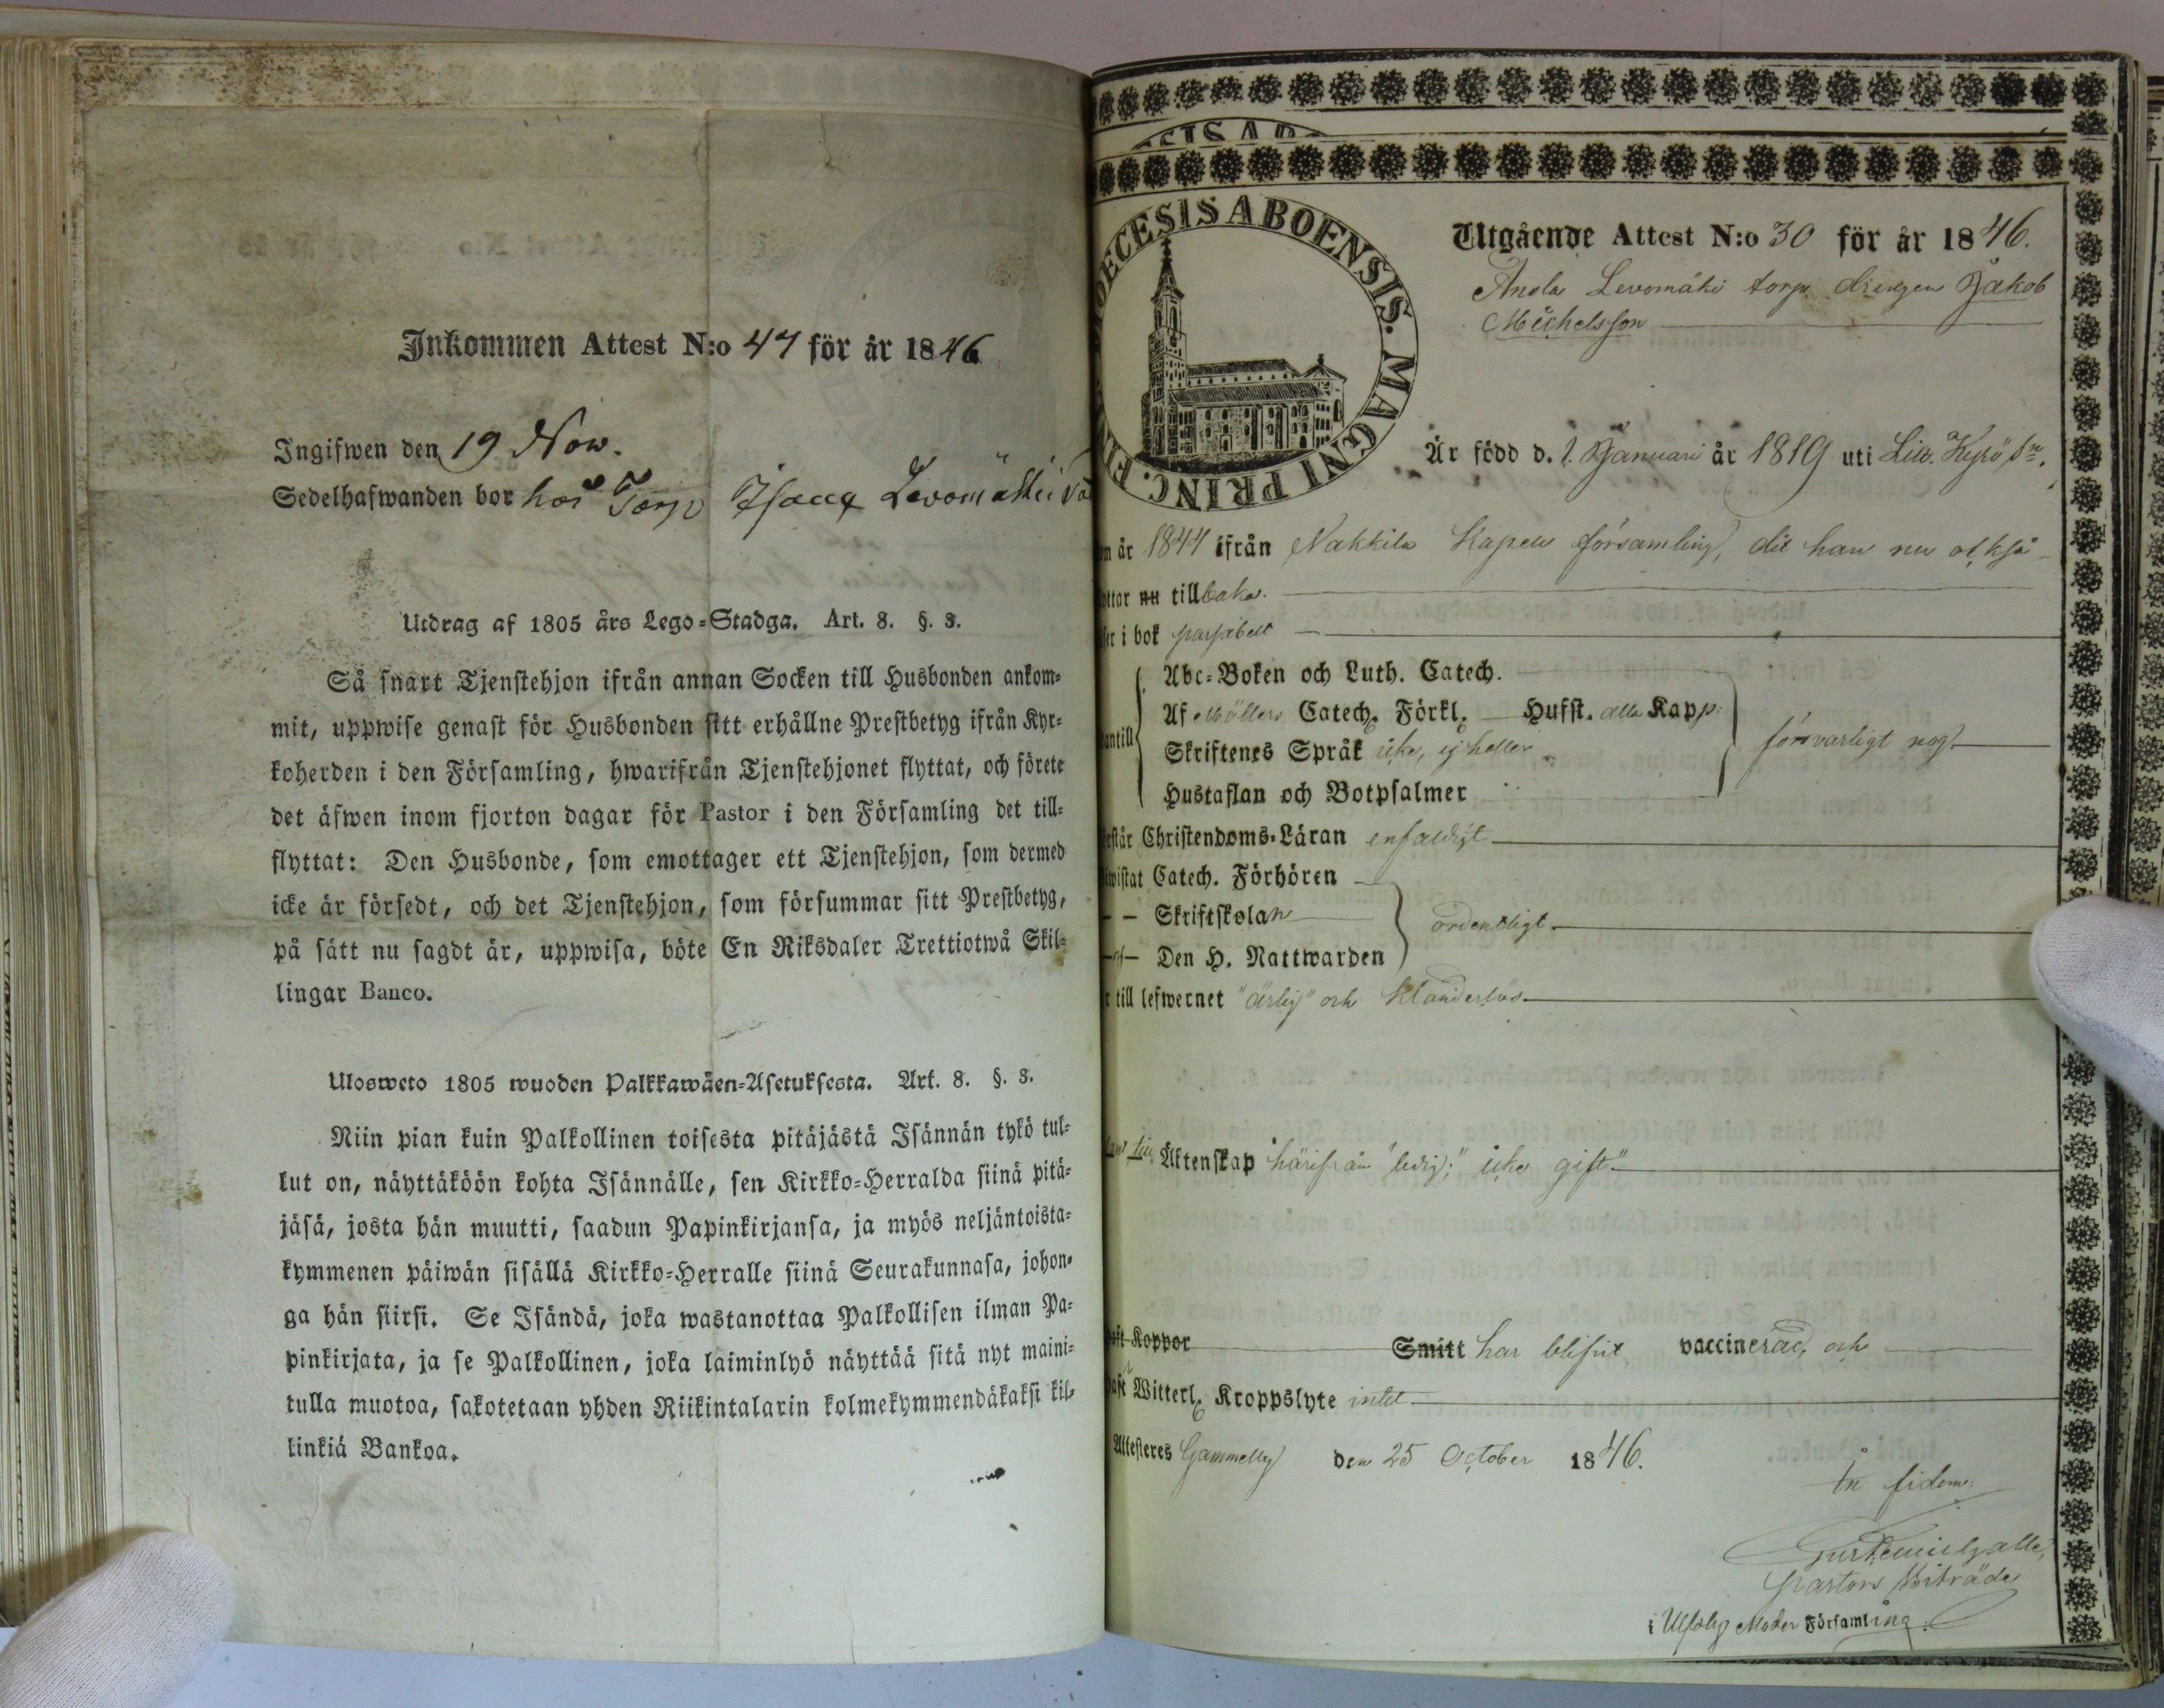 Inkommen Attest N:o 47 för år 1846
Ingifwen den 19 Nov.
Sedelhafwanden bor hos Torp Isaac Levomäki
Utdrag af 1805 års Lego-Stadga. Art. 8. §. 3.
Så snart Tjenstehjon ifrån annan Socken till Husbonden ankom-
mit, uppwise genast för Husbonden sitt erhållne Prestbetyg ifrån Kyr-
koherden i den Församling, hwarifrån Tjenstehjonet flyttat, och förete
det äfwen inom fjorton dagar för Pastor i den Församling det till-
flyttat: Den Husbonde, som emottager ett Tjenstehjon, som dermed
icke är försedt, och det Tjenstehjon, som försummar sitt Prestbetyg,
på sätt nu sagdt är, uppwisa, böte En Riksdaler Trettiotwå Skil-
lingar Banco.
Ulosweto 1805 wuoden Palkkawäen-Asetuksesta. Art. 8. §. 3.
Niin pian kuin Palkollinen toisesta pitäjästä Isännän tykö tul-
lut on, näyttäköön kohta Isännälle, sen Kirkko-Herralda siinä pitä-
jäsä, josta hän muutti, saadun Papinkirjansa, ja myös neljäntoista-
kymmenen päiwän sisällä Kirkko-Herralle siinä Seurakunnasa, johon-
ga hän siirsi. Se Isändä, joka wastanottaa Palkollisen ilman Pa-
pinkirjata, ja se Palkollinen, joka laiminlyö näyttää sitä nyt maini-
tulla muotoa, sakotetaan yhden Riikintalarin kolmekymmendäkaksi kil-
linkiä Bankoa.
SIS ABO
DIOECESIS ABOENSIS. MAGNI PRINC. FIN
Utgående Attest N:o 30 för år 1846.
Anola Levomäki torp drengen Jakob
Michelsson
Är född d. 1. Januari år 1819 uti Lill. Kyrö Sn.
om år 1844 ifrån Nakkila Kapell församling, dit han nu också
yttar nu tillbaka.
ser i bok passabelt
Abc-Boken och Luth. Catech.
Af Möllers Catech. Förkl. Hufst. alla Kapp:
antill Skriftenes Språk icke, ej heller försvarligt nog
Hustaflan och Botpsalmer
rstår Christendoms-Läran enfaldigt
wistat Catech. Förhören
— — Skriftskolan ordentligt
— Den H. Nattwarden
r till lefwernet "ärlig" och klanderlös
till Äktenskap härifrån "ledig;" icke gift"
aft Koppor Smitt har blifvit vaccinerad, och
aft Witterl. Kroppslyte intet
Attesteres Gammelby den 25 October 1846.
In fidem:
Pastors Biträde
i Ulfsby Moder Församling.